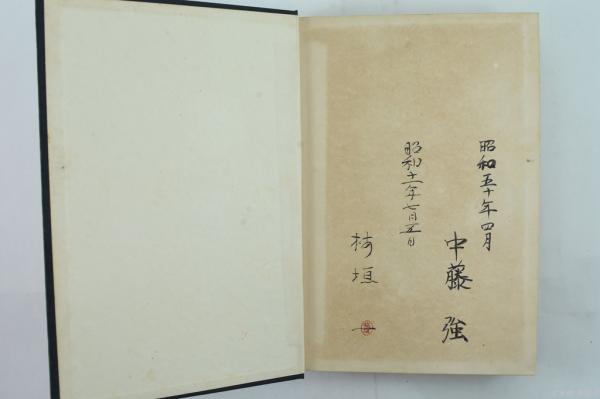 昭和五十年四月
中藤 強
昭和十一年七月五日
垣 一